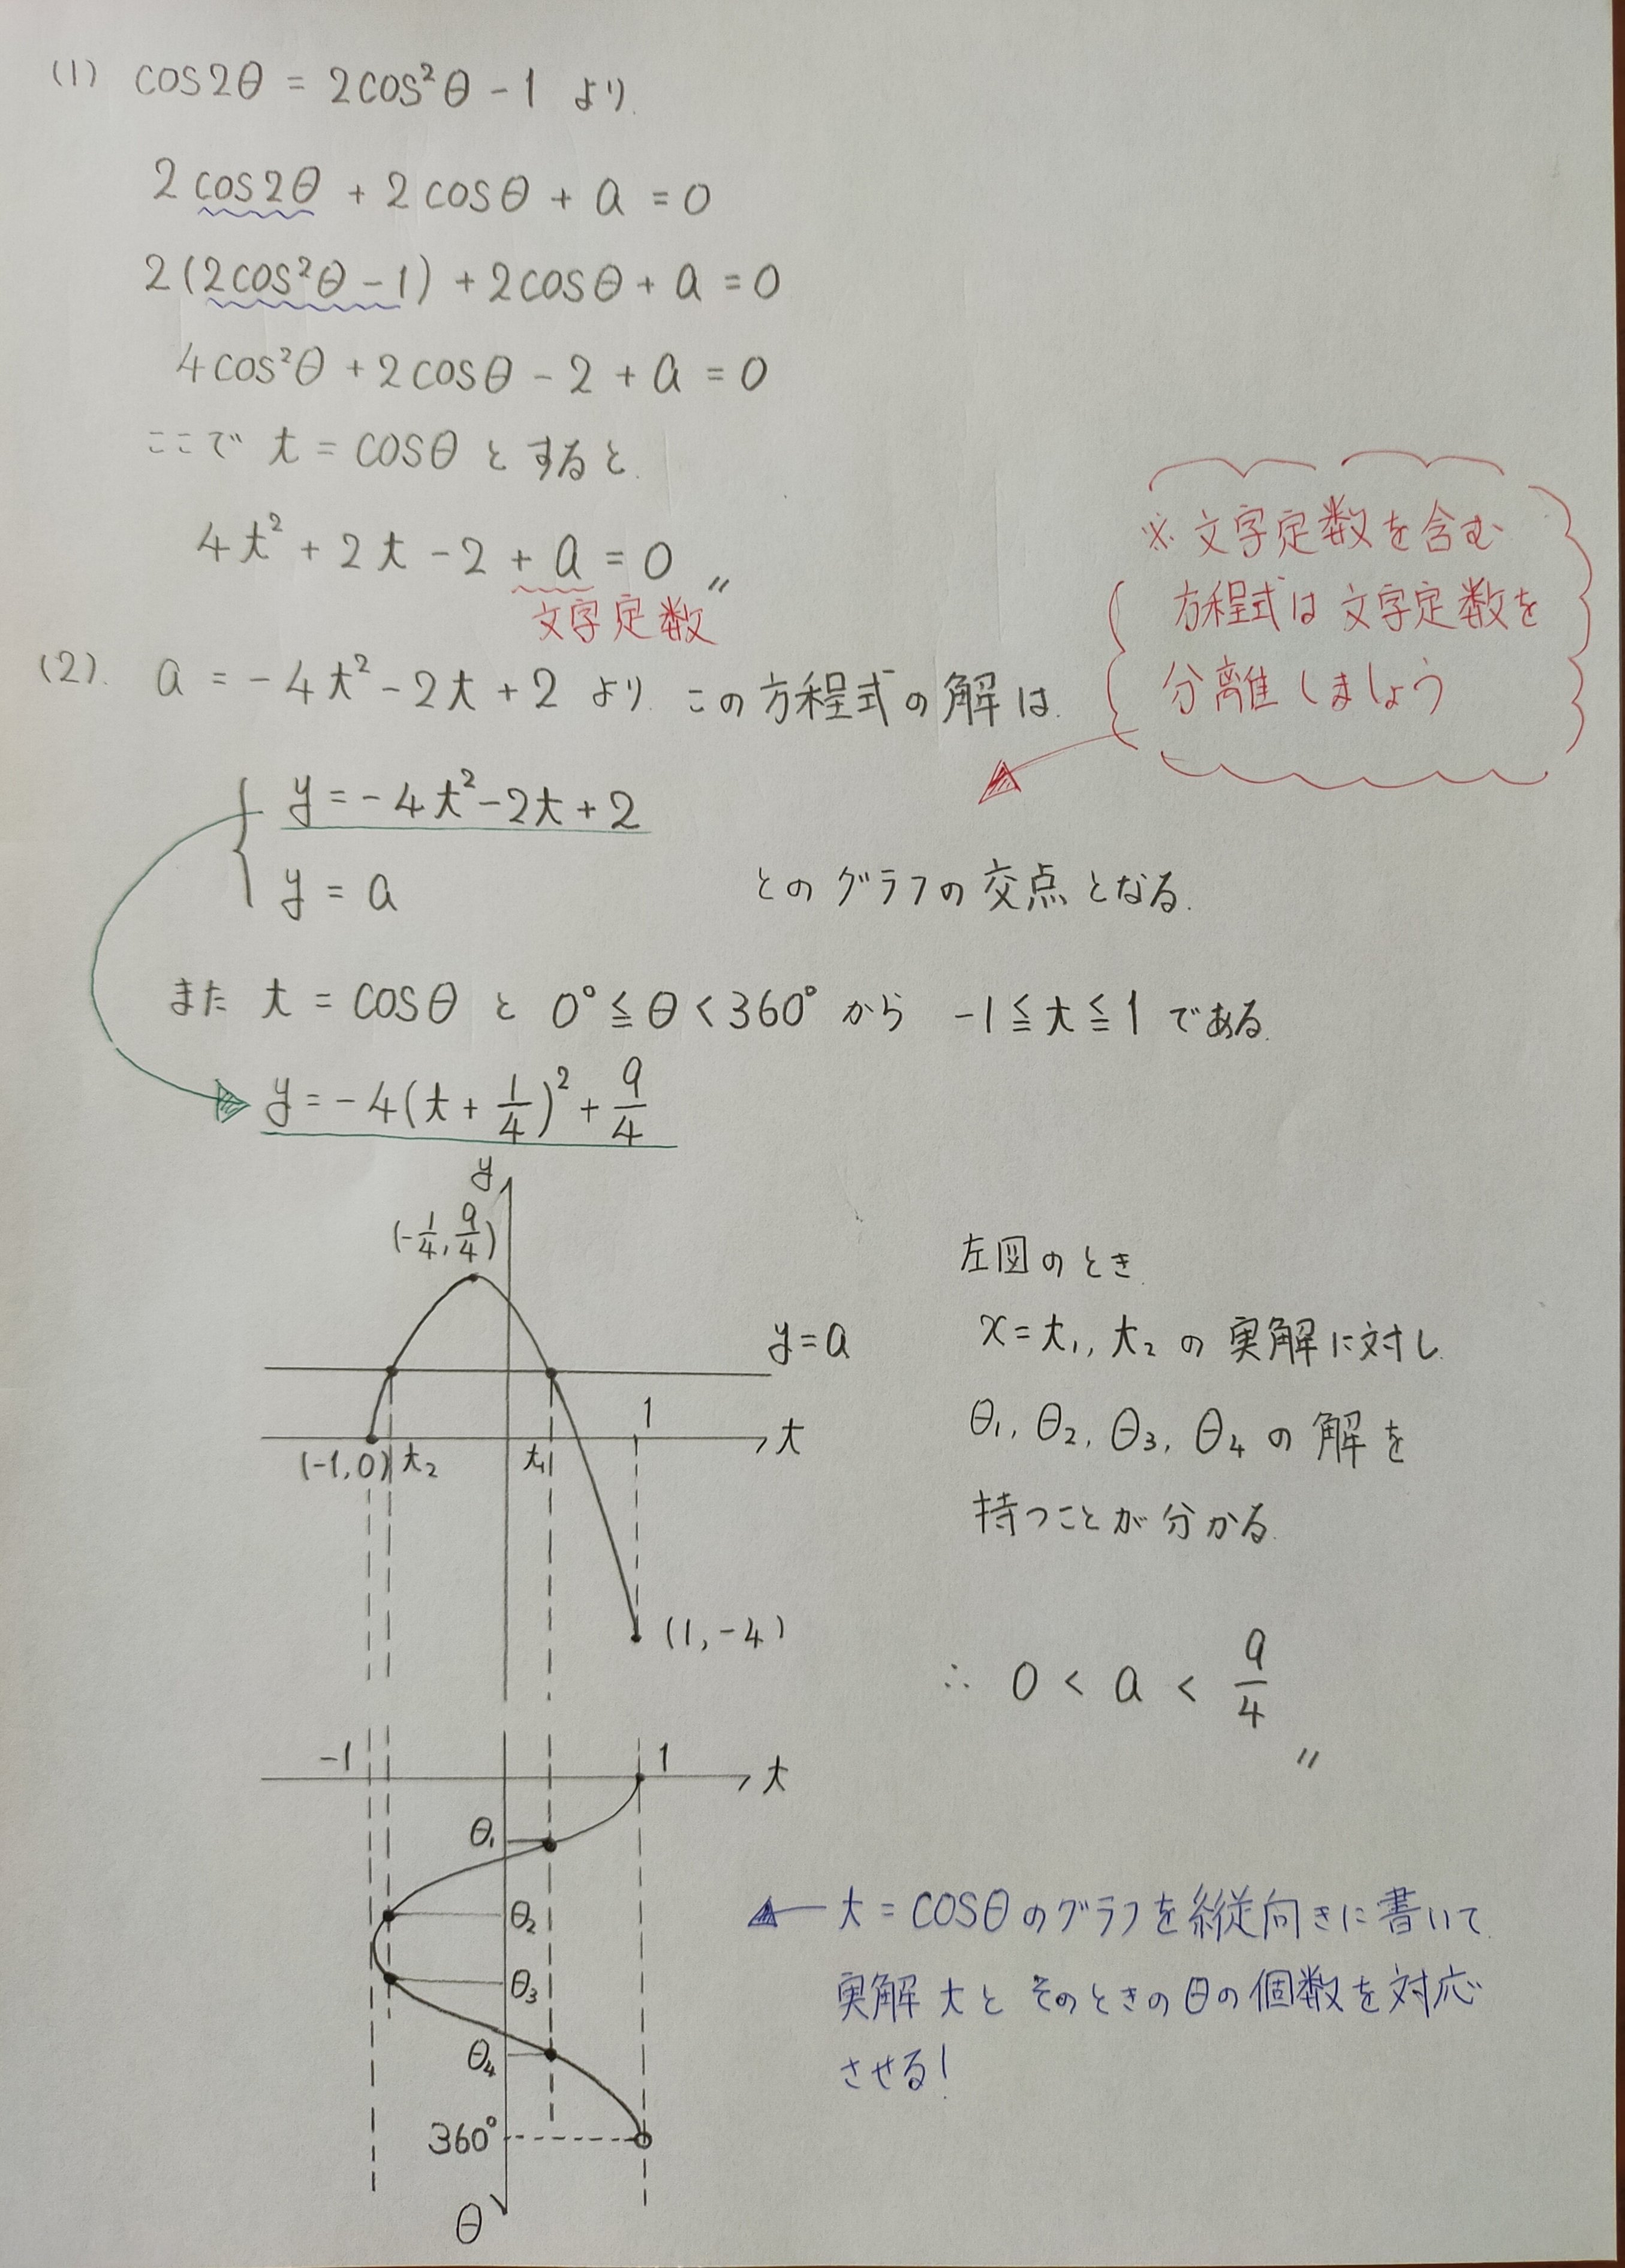 (1) cos2θ = 2cos²θ - 1 より
2cos2θ + 2cosθ + a = 0
2(2cos²θ - 1) + 2cosθ + a = 0
4cos²θ + 2cosθ - 2 + a = 0
ここで t = cosθ とすると
4t² + 2t - 2 + a = 0 〃
文字定数
※文字定数を含む
方程式は文字定数を
分離しましょう
(2). a = -4t² - 2t + 2 より この方程式の解は
y = -4t² - 2t + 2
y = a とのグラフの交点となる.
また t = cosθ と 0° ≦ θ < 360° から -1 ≦ t ≦ 1 である.
y = -4(t + 1/4)² + 9/4
y
(-1/4, 9/4)
y = a
1
t
(-1, 0) t₂ t₁
(1, -4)
左図のとき
x = t₁, t₂ の実解に対し
θ₁, θ₂, θ₃, θ₄ の解を
持つことが分かる.
∴ 0 < a < 9/4 〃
-1 1 t
θ₁
θ₂
θ₃
θ₄
360°
θ
t = cosθのグラフを縦向きに書いて
実解tとそのときのθの個数を対応
させる!